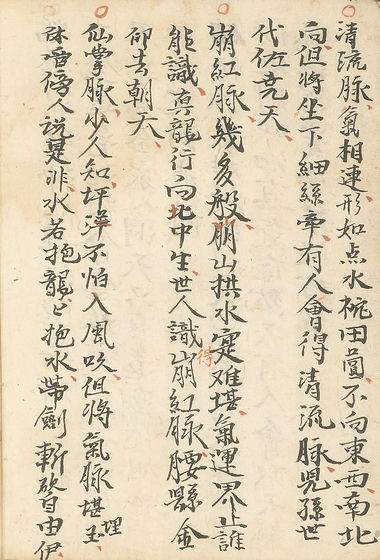 清流脉氣相連形如点水椀田圓不向東西南北
向但将坐下細絲牽有人會得清流脉児孫世
代佐尭天
崩紅脉幾多般朋山拱水寔难堪氣運界止誰
能識真龍行向北中生世人識得崩紅脉腰懸金
印去朝天
仙掌脉少人知坪洋不怕入風吹但将氣脉堪埋玉
休管傍人説是非水若抱龍〻抱水带劍斬砍自由伊